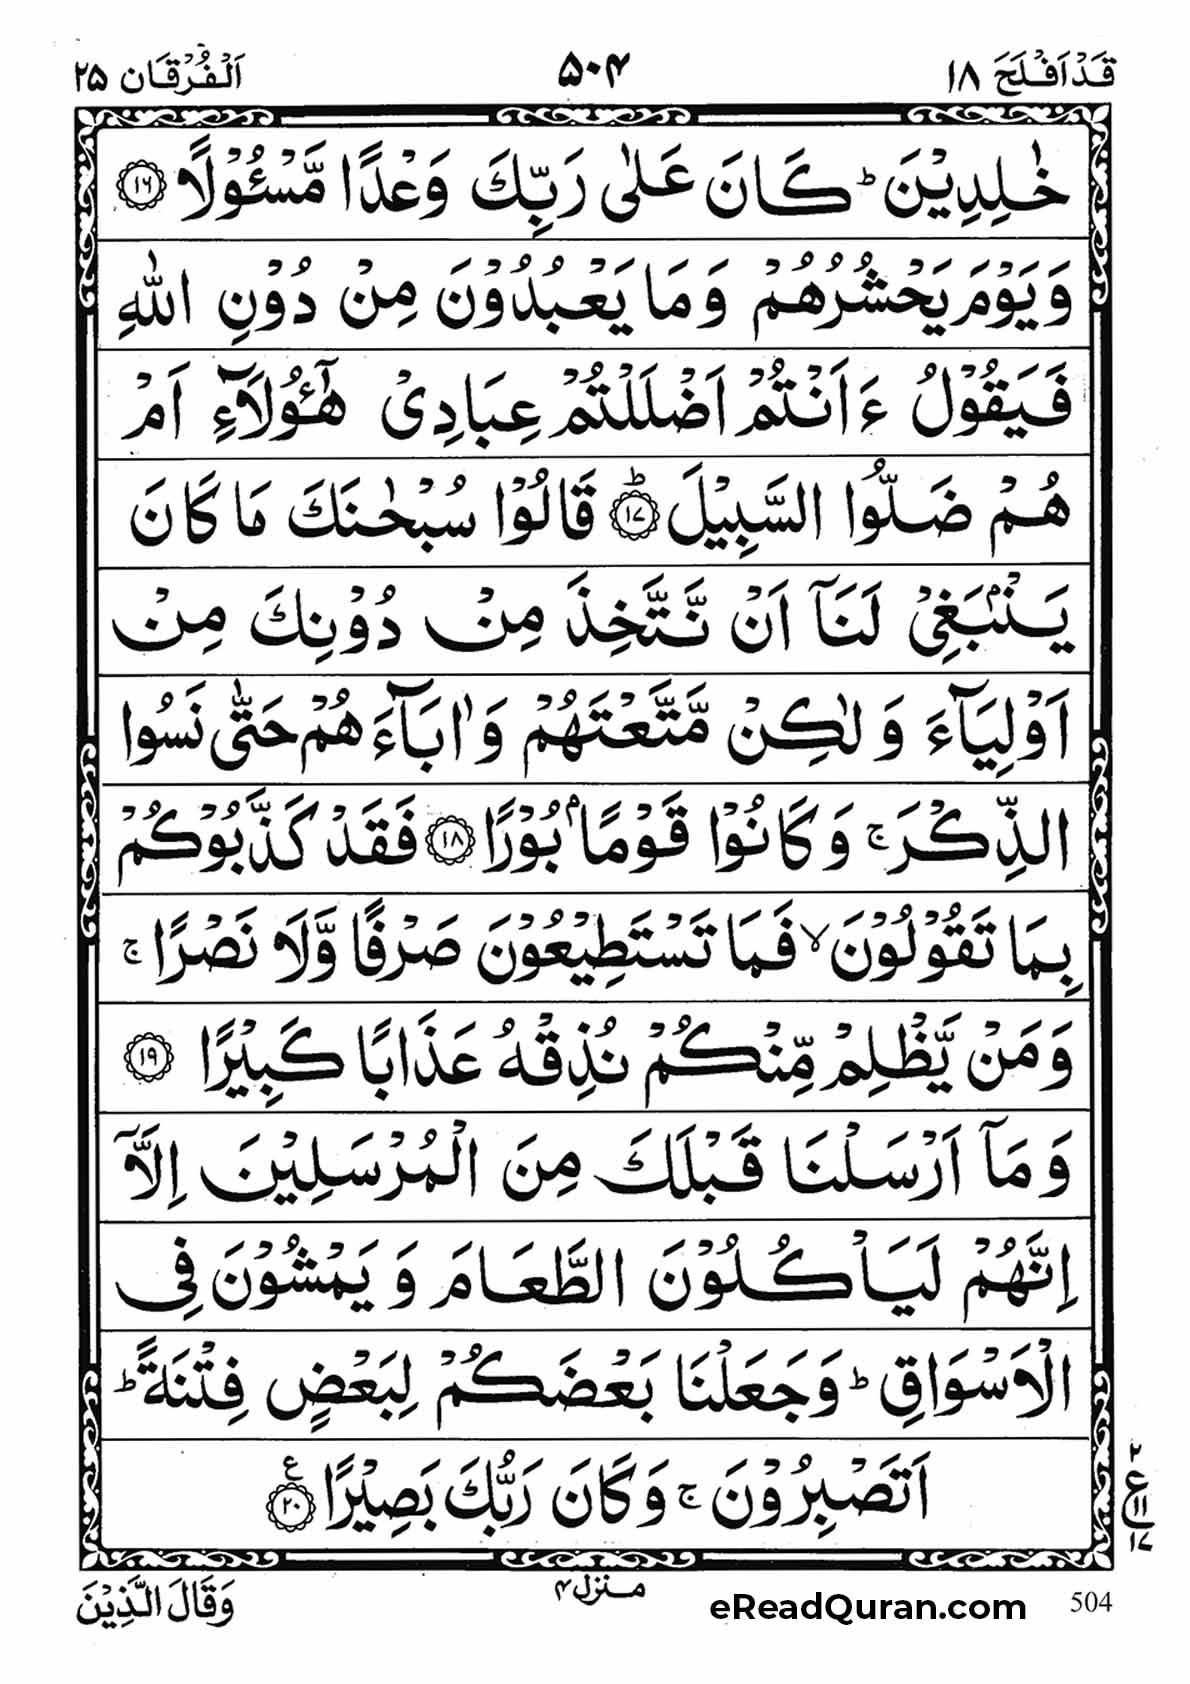 قَدْ اَفْلَحَ ١٨ ۵۰۴ اَلْفُرْقَان ٢۵
خٰلِدِيْنَ ؕ كَانَ عَلٰى رَبِّكَ وَعْدًا مَّسْـُٔوْلًا ۝١٦
وَيَوْمَ يَحْشُرُهُمْ وَمَا يَعْبُدُوْنَ مِنْ دُوْنِ اللّٰهِ
فَيَقُوْلُ ءَاَنْتُمْ اَضْلَلْتُمْ عِبَادِىْ هٰٓؤُلَآءِ اَمْ
هُمْ ضَلُّوا السَّبِيْلَ ؕ۝١٧ قَالُوْا سُبْحٰنَكَ مَا كَانَ
يَنْۢبَغِىْ لَنَآ اَنْ نَّتَّخِذَ مِنْ دُوْنِكَ مِنْ
اَوْلِيَآءَ وَلٰكِنْ مَّتَّعْتَهُمْ وَاٰبَآءَهُمْ حَتّٰى نَسُوا
الذِّكْرَ ۚ وَكَانُوْا قَوْمًاۢ بُوْرًا ۝١٨ فَقَدْ كَذَّبُوْكُمْ
بِمَا تَقُوْلُوْنَ ۙ فَمَا تَسْتَطِيْعُوْنَ صَرْفًا وَّلَا نَصْرًا ۚ
وَمَنْ يَّظْلِمْ مِّنْكُمْ نُذِقْهُ عَذَابًا كَبِيْرًا ۝١٩
وَمَآ اَرْسَلْنَا قَبْلَكَ مِنَ الْمُرْسَلِيْنَ اِلَّآ
اِنَّهُمْ لَيَاْكُلُوْنَ الطَّعَامَ وَيَمْشُوْنَ فِى
الْاَسْوَاقِ ؕ وَجَعَلْنَا بَعْضَكُمْ لِبَعْضٍ فِتْنَةً ؕ
اَتَصْبِرُوْنَ ۚ وَكَانَ رَبُّكَ بَصِيْرًا ۝٢٠ ع
٢
ع
١١
١٧
وَقَالَ الَّذِيْنَ منزل ۴ eReadQuran.com 504